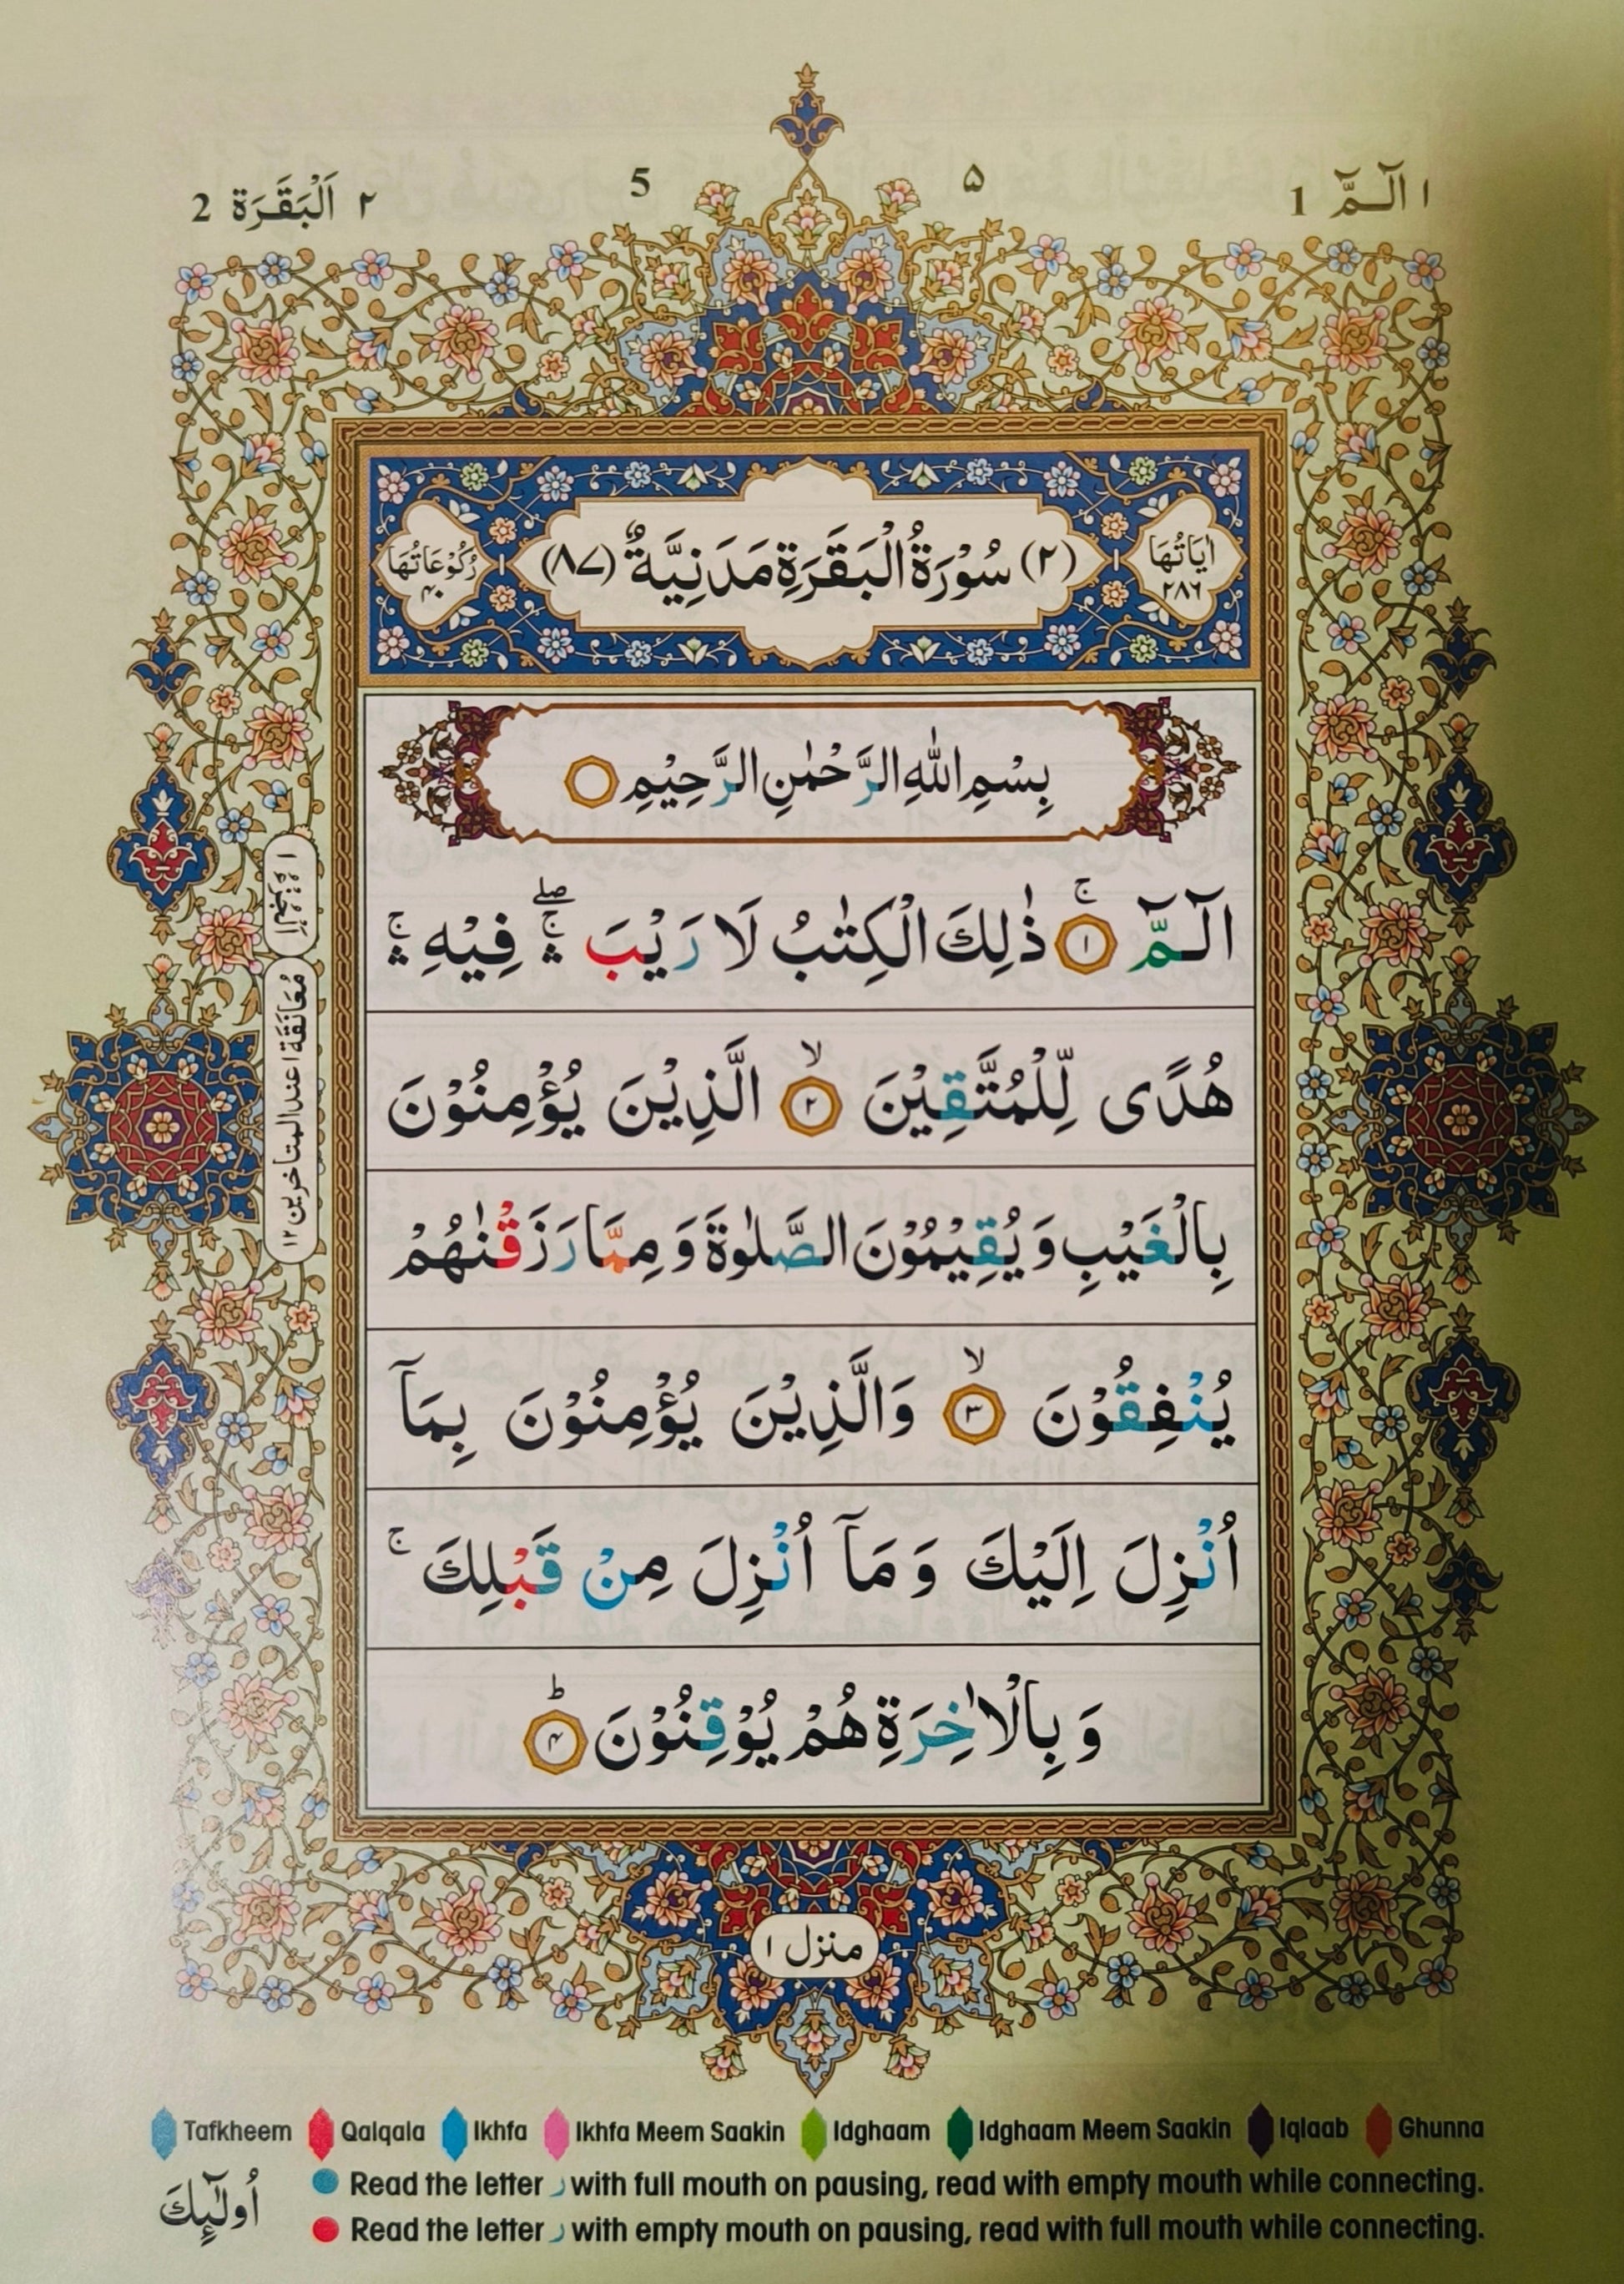 ١ الٓـمّٓ 1
۵
5
٢ اَلْبَقَرَة 2
اٰيَاتُهَا ٢٨٦
(٢) سُوْرَةُ الْبَقَرَةِ مَدَنِيَّةٌ (٨٧)
رُكُوْعَاتُهَا ۴۰
بِسْمِ اللّٰهِ الرَّحْمٰنِ الرَّحِيْمِ
الٓمّٓ ۚ ١ ذٰلِكَ الْكِتٰبُ لَا رَيْبَ ۛۚۖ فِيْهِ ۛۚ
هُدًى لِّلْمُتَّقِيْنَ ۙ ٢ الَّذِيْنَ يُؤْمِنُوْنَ
بِالْغَيْبِ وَيُقِيْمُوْنَ الصَّلٰوةَ وَمِمَّا رَزَقْنٰهُمْ
يُنْفِقُوْنَ ۙ ٣ وَالَّذِيْنَ يُؤْمِنُوْنَ بِمَآ
اُنْزِلَ اِلَيْكَ وَمَآ اُنْزِلَ مِنْ قَبْلِكَ ۚ
وَبِالْاٰخِرَةِ هُمْ يُوْقِنُوْنَ ؕ ۴
مُعَانَقَة ١ عند المتاخرين ١٢
منزل ١
Tafkheem Qalqala Ikhfa Ikhfa Meem Saakin Idghaam Idghaam Meem Saakin Iqlaab Ghunna
Read the letter ر with full mouth on pausing, read with empty mouth while connecting.
Read the letter ر with empty mouth on pausing, read with full mouth while connecting.
اُولٰٓئِكَ